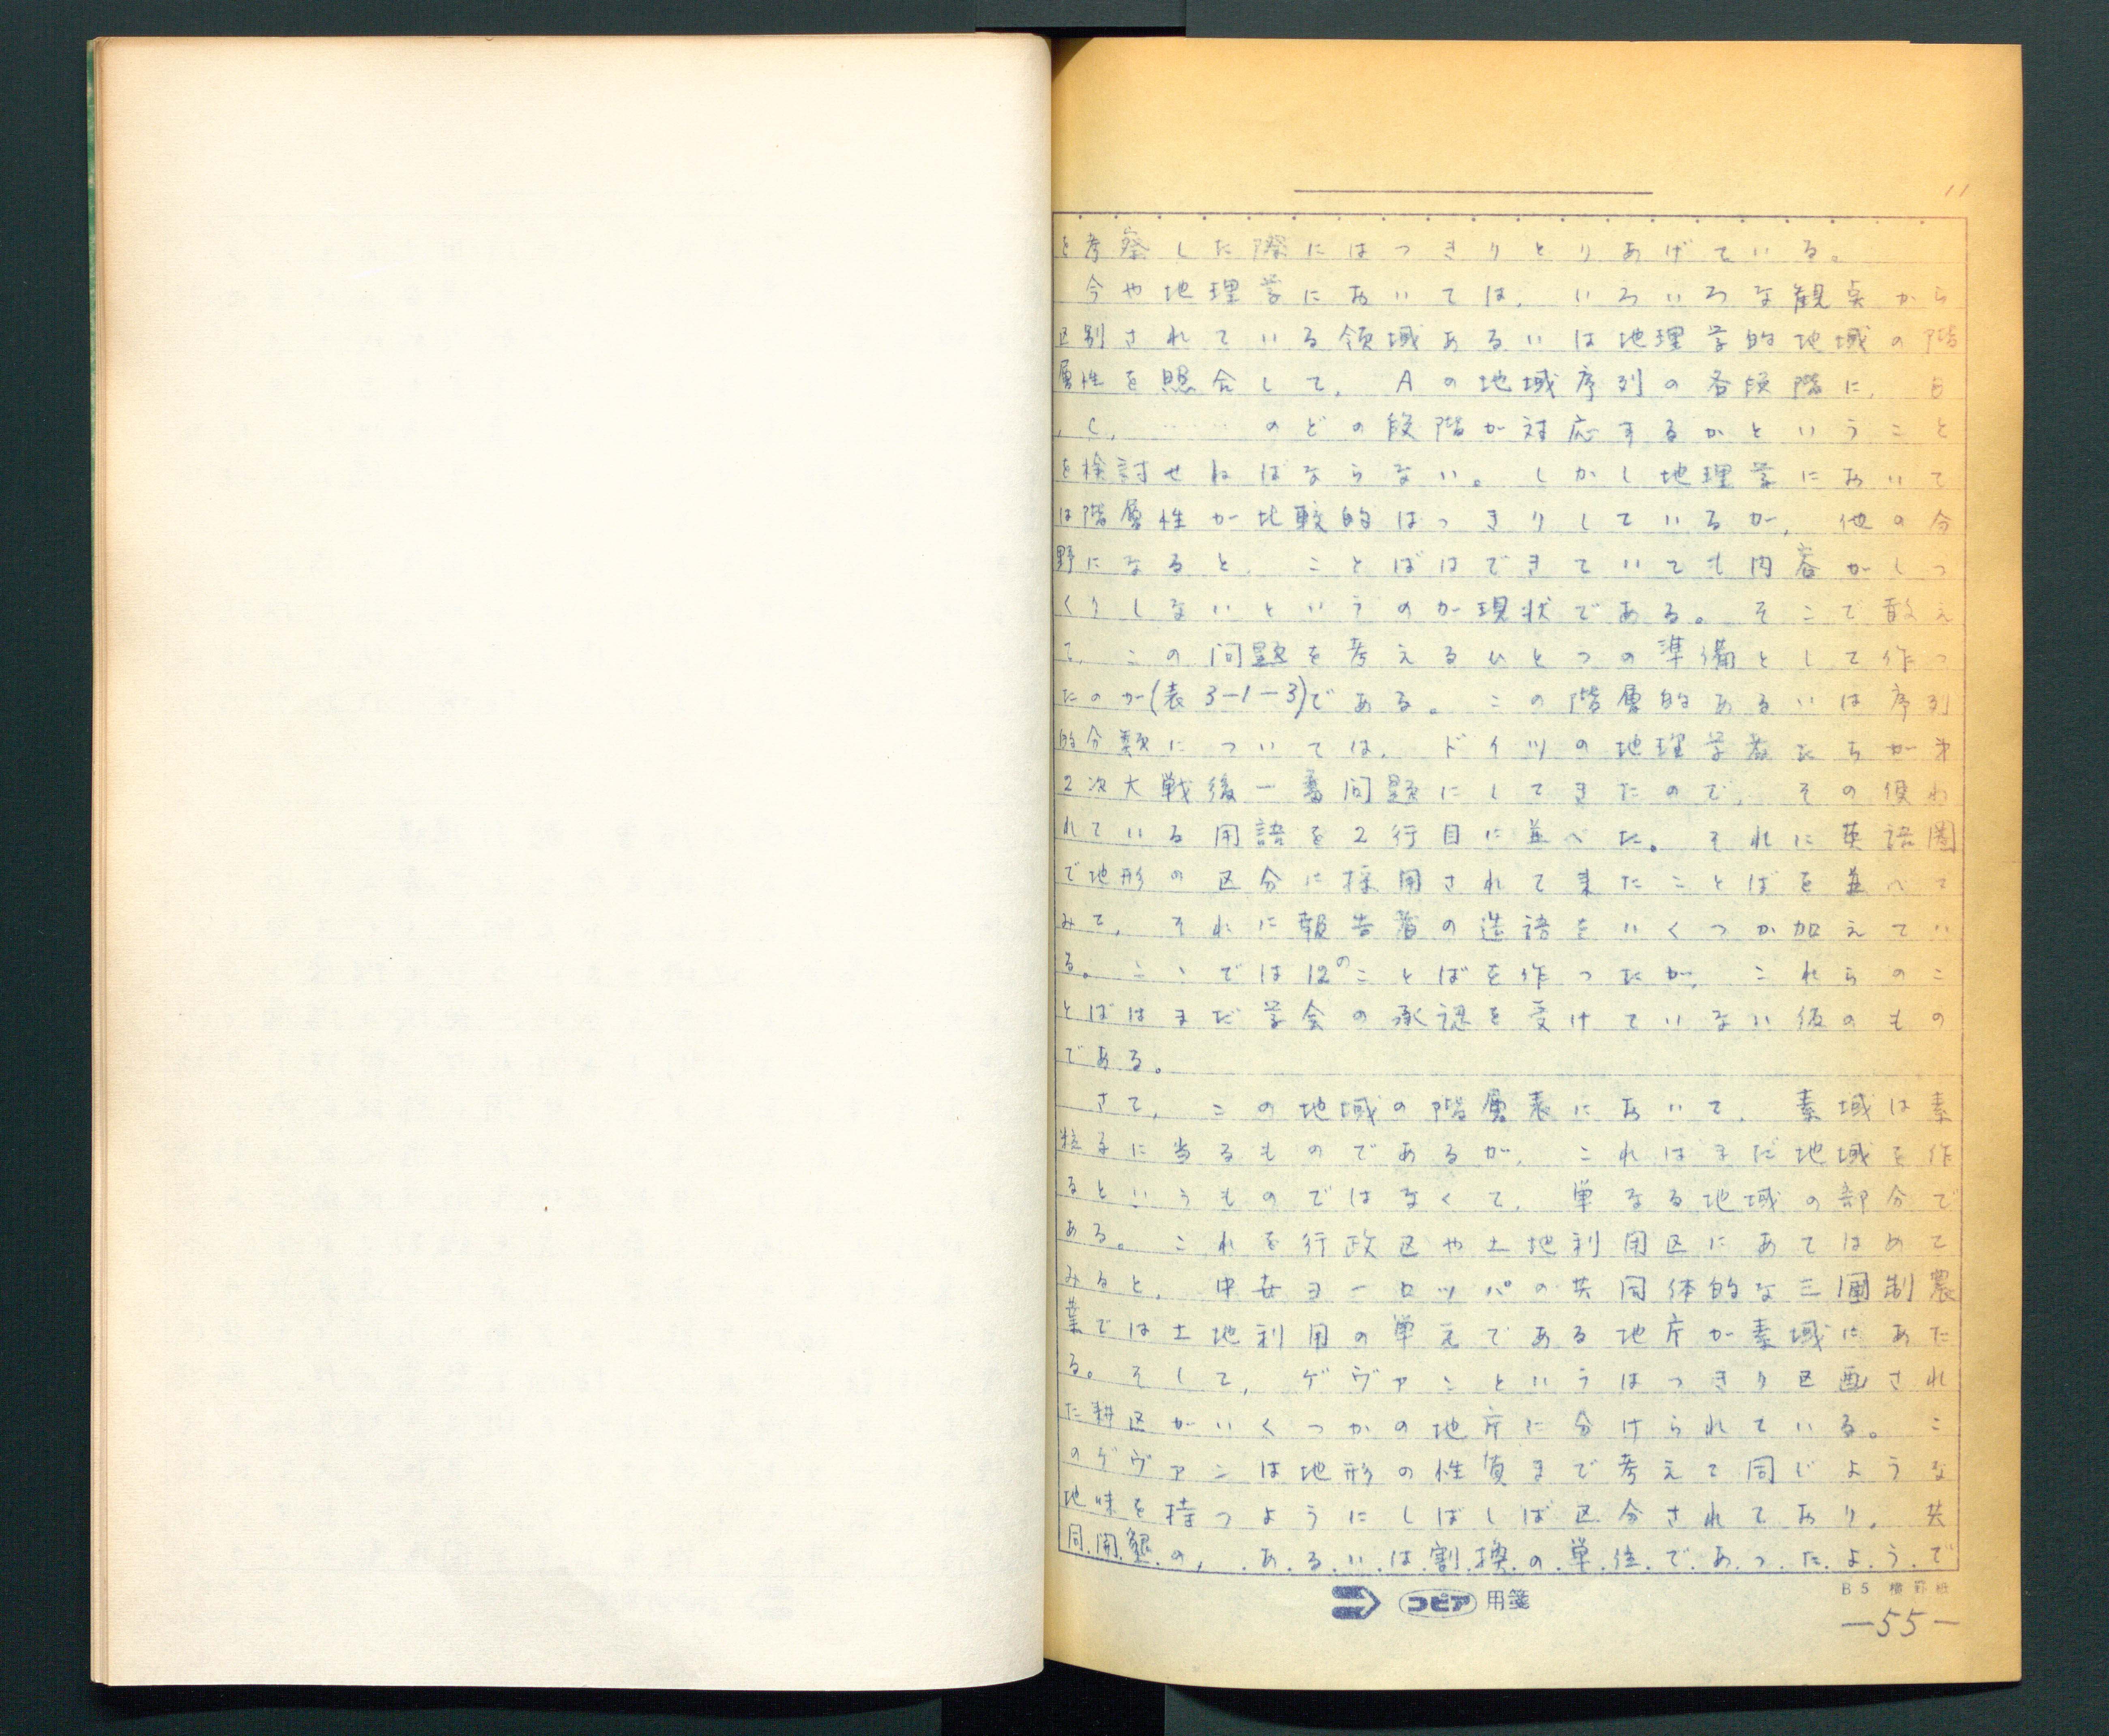 11
を考察した際にはっきりとりあげている。
今や地理学においては，いろいろな観点から
区別されている領域あるいは地理学的地域の階
層性を照合して，Aの地域序列の各段階に，B
，C，……のどの段階が対応するかということ
を検討せねばならない。しかし地理学において
は階層性が比較的はっきりしているが，他の分
野になると，ことばはできていても内容がしっ
くりしないというのが現状である。そこで敢え
て，この問題を考えるひとつの準備として作っ
たのが(表3-1-3)である。この階層的あるいは序列
的分類については，ドイツの地理学者たちが才
2次大戦後一番問題にしてきたので，その使わ
れている用語を2行目に並べた。それに英語圏
で地形の区分に採用されて来たことばを並べて
みて，それに報告者の造語をいくつか加えてい
る。ここでは12のことばを作ったが，これらのこ
とばはまだ学会の承認を受けていない仮のもの
である。
さて，この地域の階層表において，素域は素
粒子に当るものであるが，これはまだ地域を作
るというものではなくて，単なる地域の部分で
ある。これを行政区や土地利用区にあてはめて
みると，中世ヨーロッパの共同体的な三圃制農
業では土地利用の単元である地片が素域にあた
る。そして，ゲヴァンというはっきり区画され
た耕区がいくつかの地片に分けられている。こ
のゲヴァンは地形の性質まで考えて同じような
地味を持つようにしばしば区分されており，共
同開墾の，あるいは割換の単位であったようで
コピア 用箋
B5 横罫紙
—55—